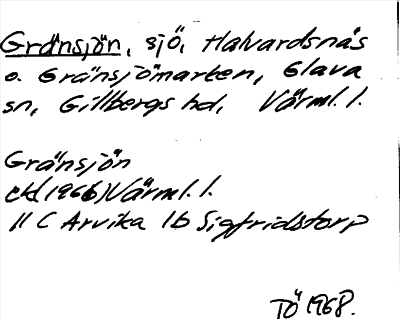 Gränsjön, sjö, Halvardsnäs
o. Gränsjömarten, Glava
sn, Gillbergs hd, Värml. l.
Gränsjön
ek (1966) Värml. l.
11 C Arvika 1b Sigfridstorp
TÖ 1968.